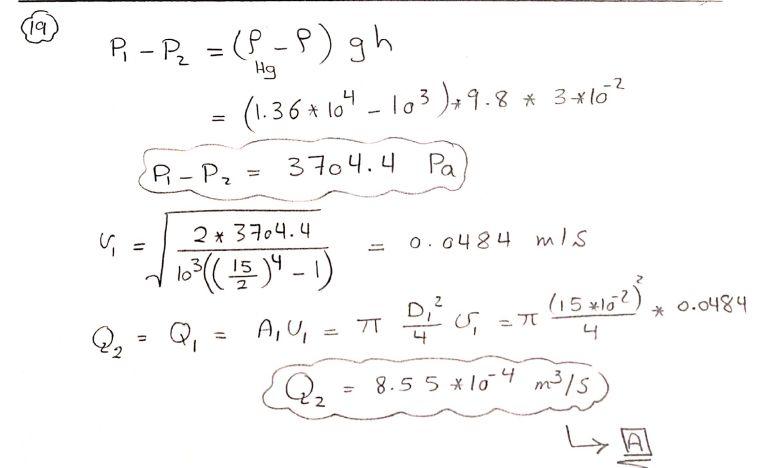 19
P₁ - P₂ = (ρ_Hg - ρ) gh
= (1.36 * 10⁴ - 10³) * 9.8 * 3 * 10⁻²
P₁ - P₂ = 3704.4 Pa
υ₁ = √(2 * 3704.4 / 10³((15/2)⁴ - 1)) = 0.0484 m/s
Q₂ = Q₁ = A₁υ₁ = π D₁²/4 υ₁ = π (15 * 10⁻²)²/4 * 0.0484
Q₂ = 8.55 * 10⁻⁴ m³/s
↳ A